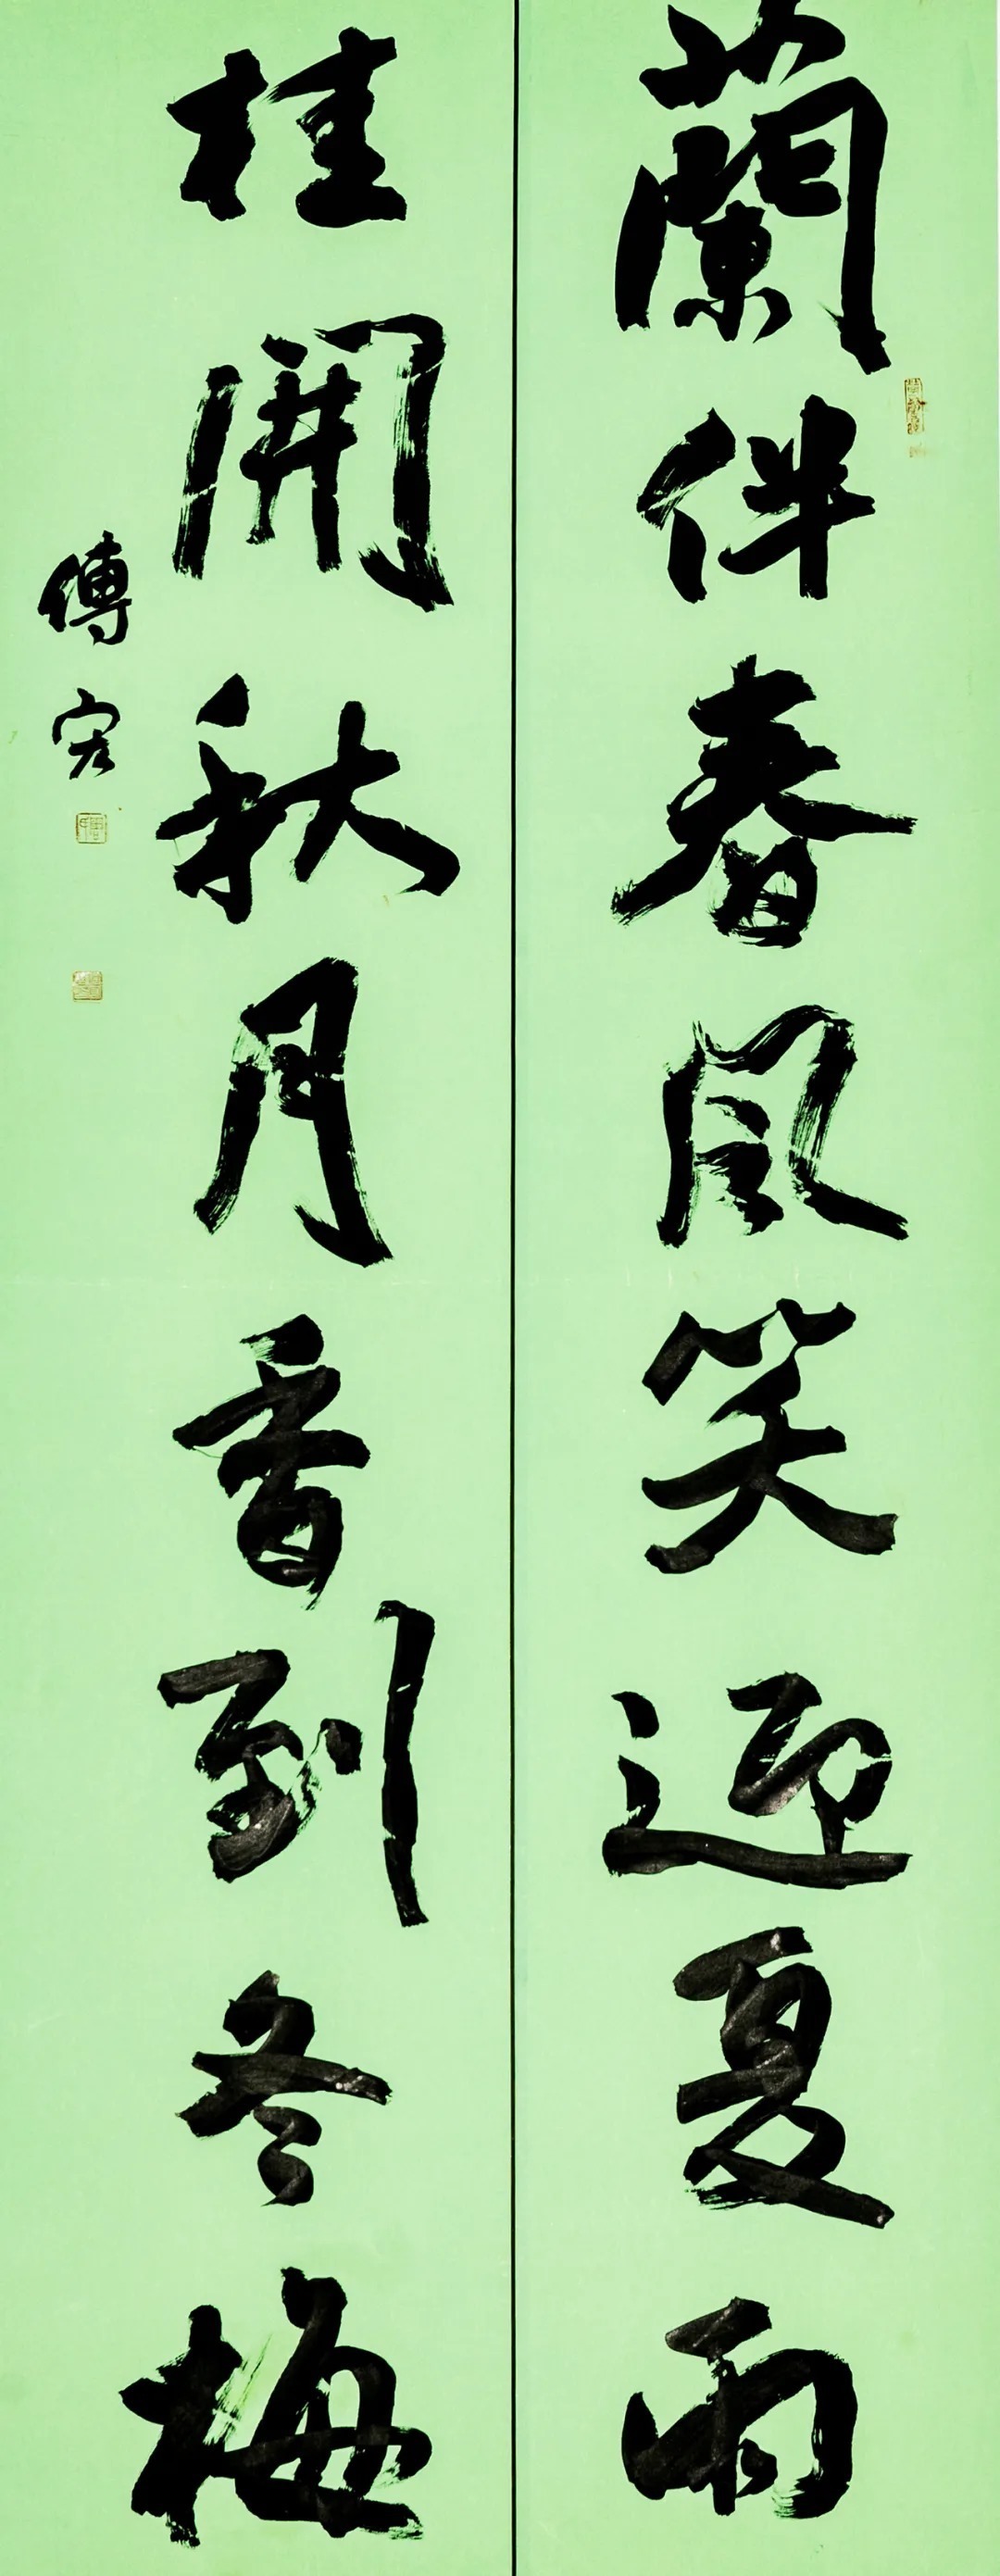 蘭伴春風笑迎夏雨
桂開秋月香到冬梅
傅宏